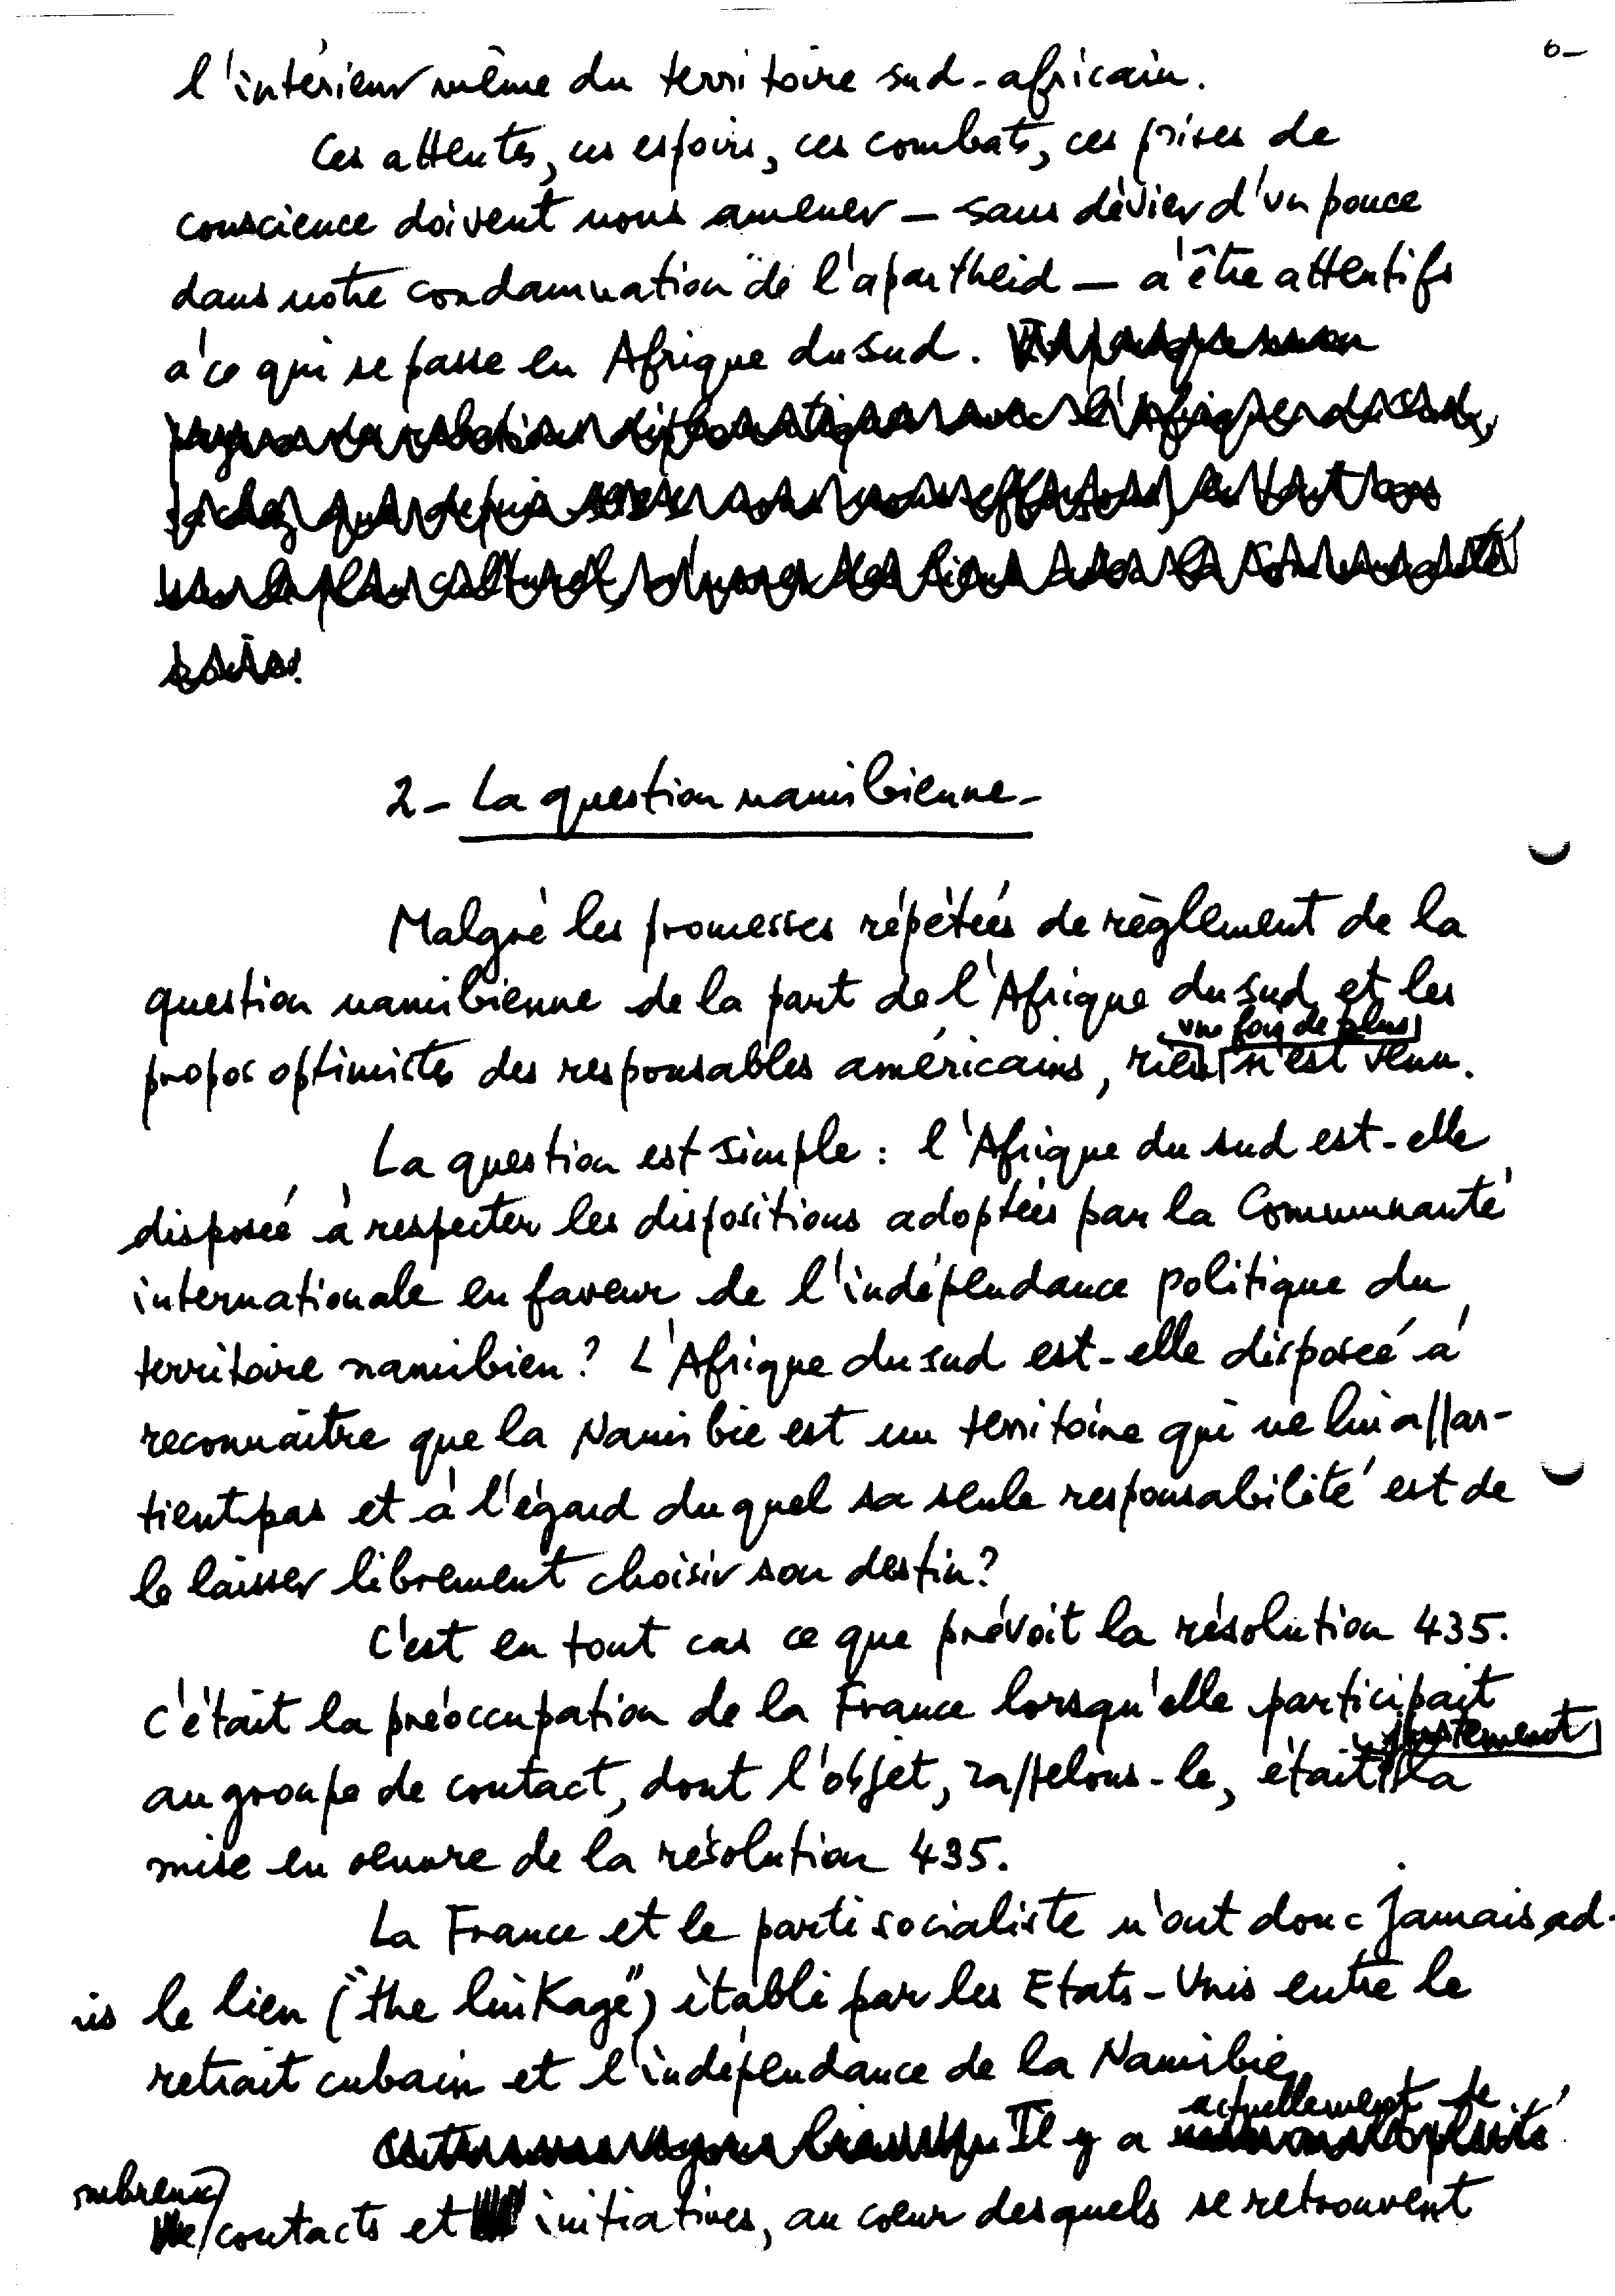 6-
l'intérieur même du territoire sud-africain.
Ces attentes, ces espoirs, ces combats, ces prises de
conscience doivent nous amener - sans dévier d'un pouce
dans notre condamnation de l'apartheid - à être attentifs
à ce qui se passe en Afrique du Sud.
2- La question namibienne-
Malgré les promesses répétées de règlement de la
question namibienne de la part de l'Afrique du Sud et les
une fois de plus
propos optimistes des responsables américains, rien n'est venu.
La question est simple : l'Afrique du Sud est-elle
disposée à respecter les dispositions adoptées par la Communauté
internationale en faveur de l'indépendance politique du
territoire namibien? L'Afrique du Sud est-elle disposée à
reconnaître que la Namibie est un territoire qui ne lui appar-
tient pas et à l'égard duquel sa seule responsabilité est de
le laisser librement choisir son destin?
C'est en tout cas ce que prévoit la résolution 435.
C'était la préoccupation de la France lorsqu'elle participait
justement
au groupe de contact, dont l'objet, rappelons-le, était la
mise en oeuvre de la résolution 435.
La France et le parti socialiste n'ont donc jamais ad-
is le lien ("the linkage") établi par les Etats-Unis entre le
retrait cubain et l'indépendance de la Namibie
actuellement de
Il y a
mbreux
contacts et initiatives, au coeur desquels se retrouvent